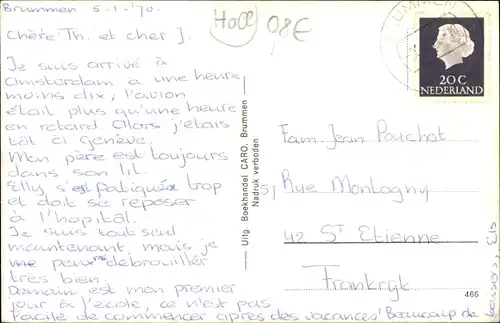 Brummen 5-1-'70.
Holl 08E
Chère Th. et cher J.
Je suis arrivé à
Amsterdam a une heure
moins dix, l'avion
était plus qu'une heure
en retard. Alors j'étais
tôt à Genève.
Mon père est toujours
dans son lit.
Elly s'est fatiguée trop
et doit se reposer
à l'hopitâl.
Je suis tout seul
maintenant, mais je
me peux débrouiller
très bien.
Demain est mon premier
jour à l'école, ce n'est pas
facile de commencer après des vacances! Beaucoup de
Uitg. Boekhandel CARO, Brummen
Nadruk verboden
BRUMMEN
20C
NEDERLAND
Fam Jean Pouchot
51 Rue Montagny
42 ST Etienne
Frankryk
466